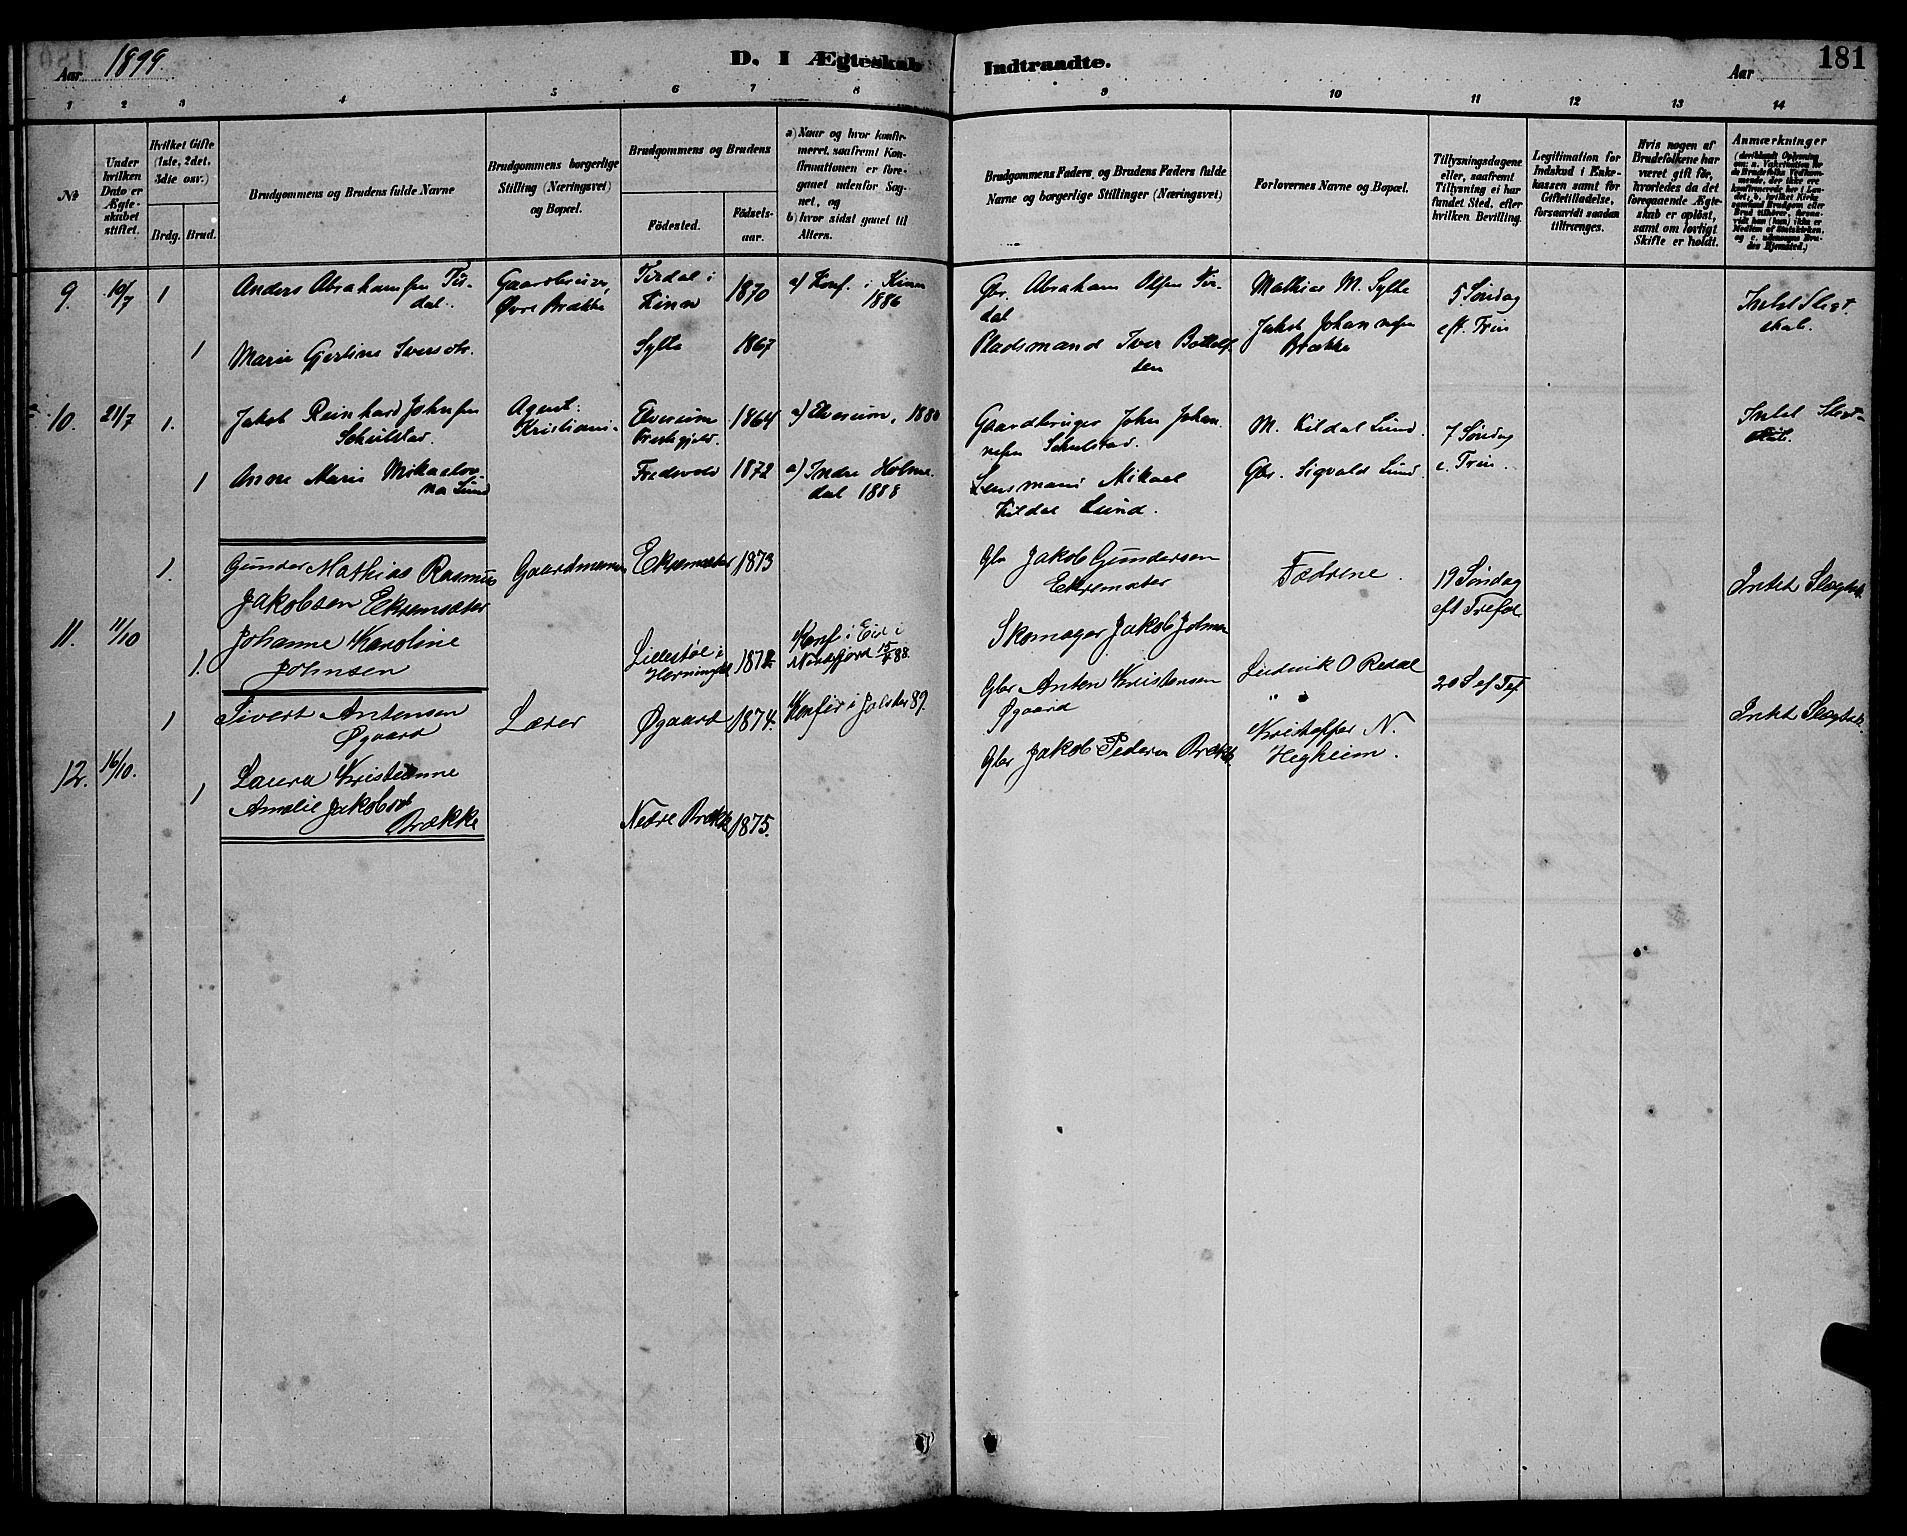 Aar 1899.
D. I Ægteskab Indtraadte.
Aar
181
1 2 3 4 5 6 7 8 9 10 11 12 13 14
№
Under hvilken Dato er Ægteskabet stiftet.
Hvilket Gifte (1ste, 2det, 3die osv.)
Brdg. Brud.
Brudgommens og Brudens fulde Navne
Brudgommens borgerlige Stilling (Næringsvei) og Bopæl.
Brudgommens og Brudens
Fødested.
Fødselsaar.
a) Naar og hvor konfirmeret, saafremt Konfirmationen er foregaaet udenfor Sognet, og
b) hvor sidst gaaet til Alters.
Brudgommens Faders, og Brudens Faders fulde Navne og borgerlige Stillinger (Næringsvei)
Forlovernes Navne og Bopæl.
Tillysningsdagene eller, saafremt Tillysning ei har fundet Sted, efter hvilken Bevilling.
Legitimation for Indskud i Enkekassen samt for Giftetilladelse, forsaavidt saadan tiltrænges.
Hvis nogen af Brudefolkene har været gift før, hvorledes da det foregaaende Ægteskab er opløst, samt om lovligt Skifte er holdt.
Anmærkninger
9. 10/7 1
Anders Abrahamsen Tirdal.
Gaardbruger, Øvre Brække
Tirdal i Kinn
1870
a) Konf. i Kinn 1886
Gbr. Abraham Olsen Tirdal
Mathias M. Sylte
5 Søndag eft. Trin
Intet Slegtskab.
1
Marie Gjertine Iversdtr.
Sylte
1867
Pladsmand Iver Bottolfsen
Jakob Johannesen Brække
10. 21/7 1.
Jakob Reinhard Johnsen Schulstad.
Agent: Kristiania
Elverum Prestegjeld.
1864
a) Elverum, 1880
Gaardbruger John Johannesen Schulstad.
M. Kildal Lund.
7 Søndag e. Trin.
Intet Slegtskab.
1
Anne Marie Mikaelovna Lund
1872
a) Indre Holmedal 1888
Lensmand Mikael Kildal Lund.
Gbr. Sigvald Lund
11. 11/10 1.
Gunder Mathias Rasmus Jakobsen Ekremsæter
Gaardmand
Ekremsæter
1873
Gbr Jakob Gundersen Ekremsæter
Fædrene.
19 Søndag eft Trefol
Intet Slægtsk.
1.
Johanne Karoline Johnsen
Lillestøl i Horningdal
187
Konf i Eid i Nordfjord 15/4 88
Skomager Jakob Johnsen
12. 16/10. 1
Sivert Antensen Øgaard
Lærer
Øgaard
1874.
Konfir i Jølster 89.
Gbr Anten Kristensen Øgaard
Ludvik O Redal
20 S ef Tref
Intet Slægtsk.
1
Laura Kristianne Amalie Jakobsdt Brække
Nedre Brække
1875.
Gbr Jakob Pedersen Brække
Kristoffer N. Hegheim.